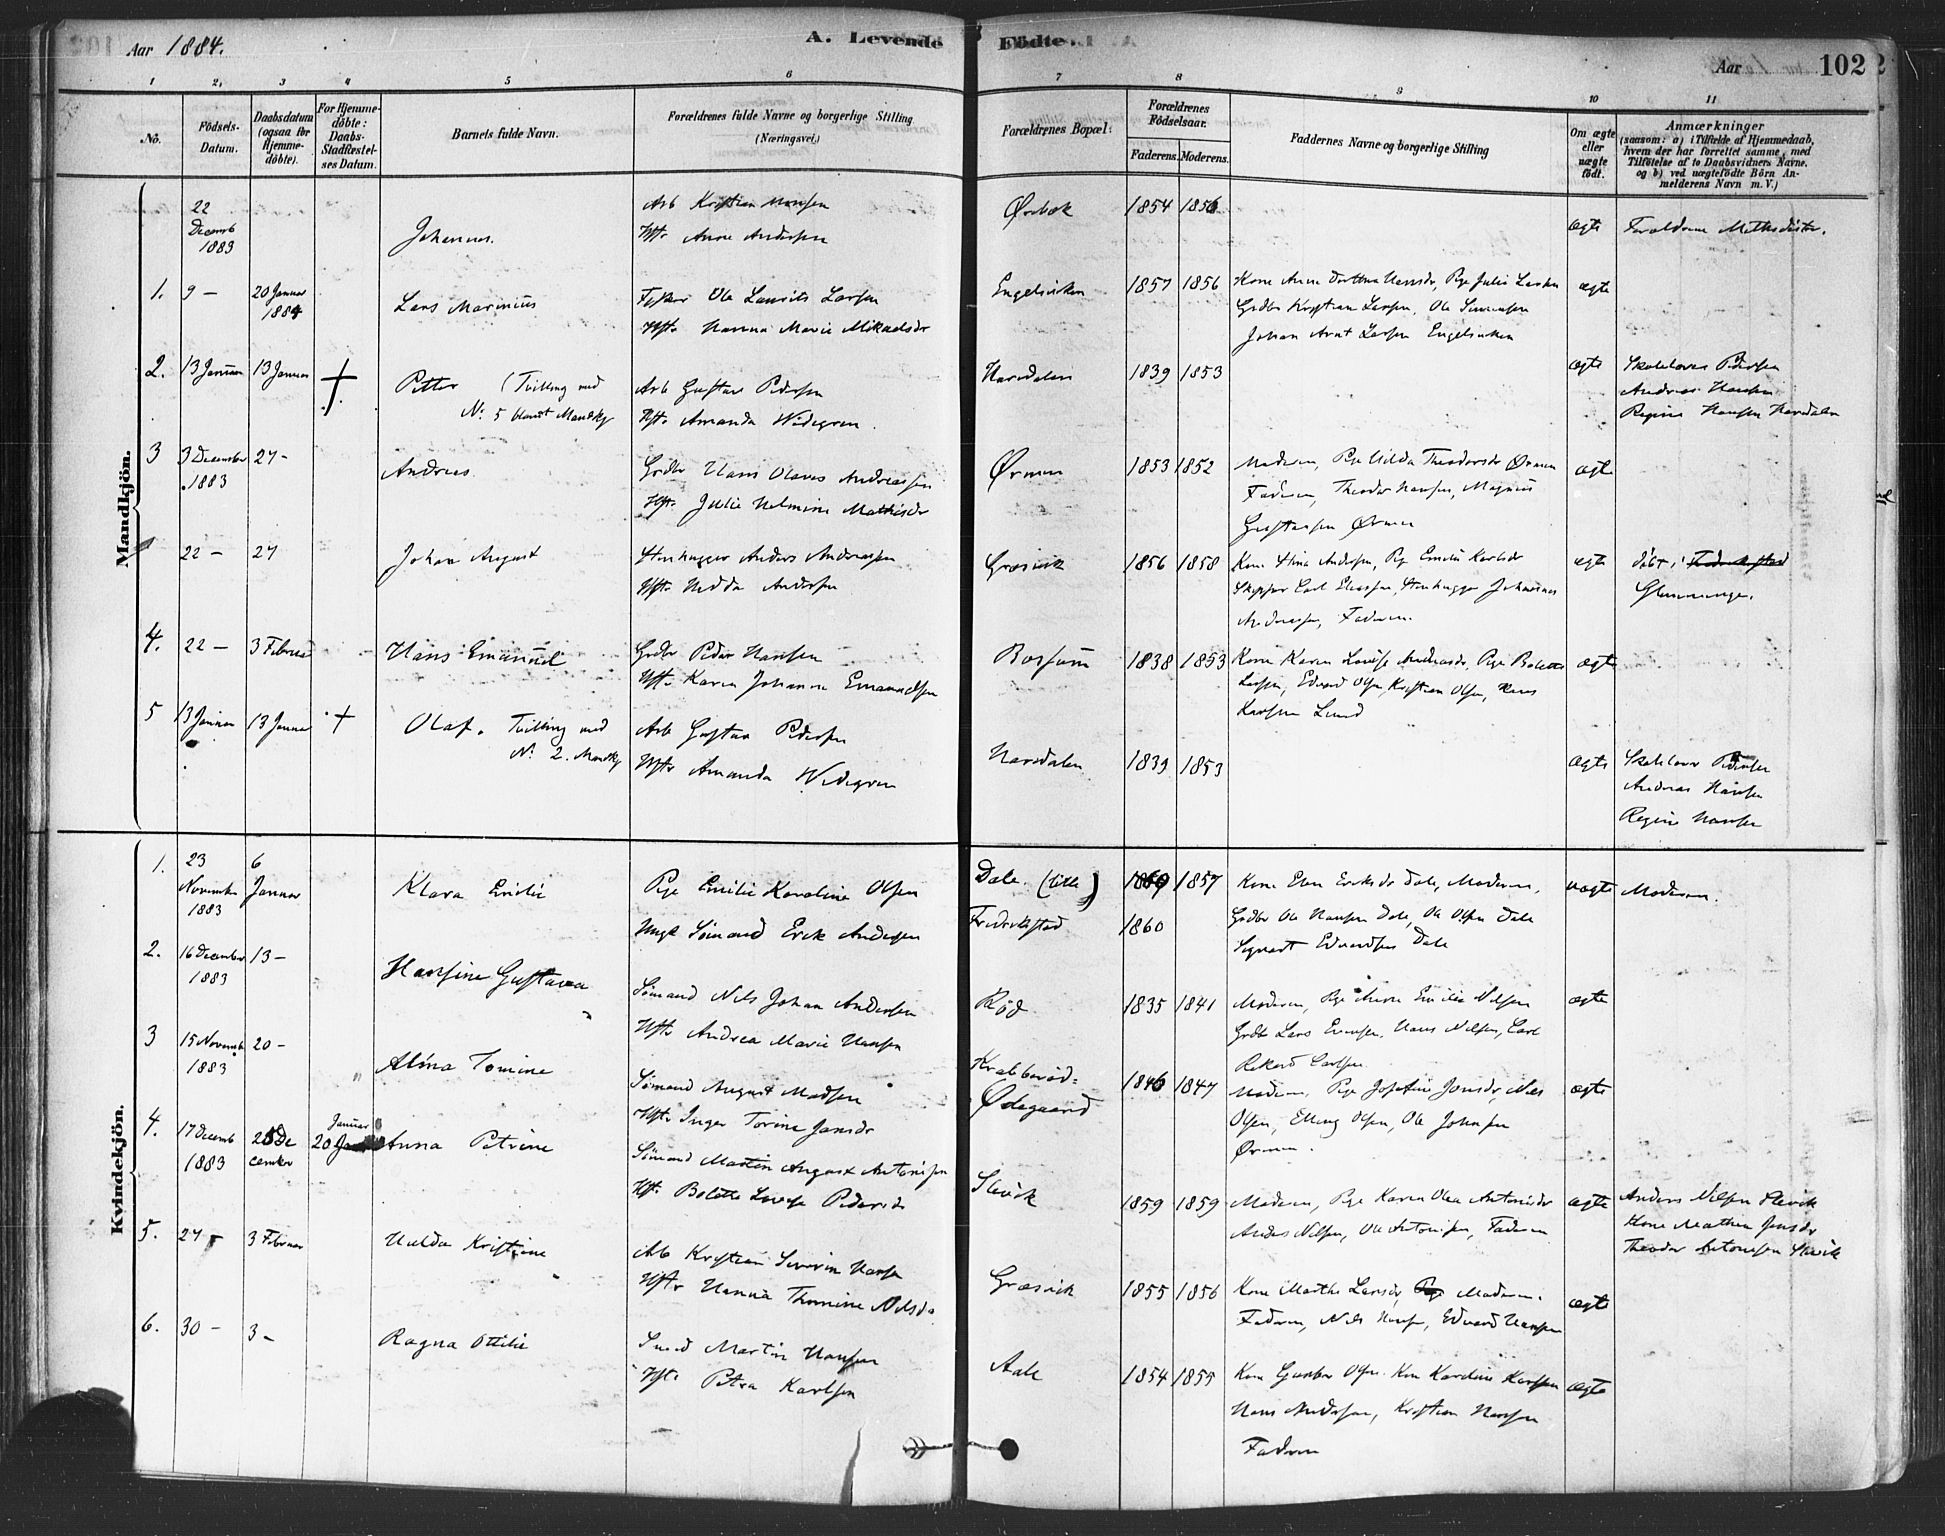 Aar 1884.
A. Levende Födte.
Aar
102
1 2. 3 4 5 6 7 8 9 10 11
No.
Födsels-Datum.
Daabsdatum (ogsaa for Hjemme-döbte).
For Hjemme-döbte: Daabs-Stadfæstel-ses Datum.
Barnets fulde Navn.
Forældrenes fulde Navne og borgerlige Stilling (Næringsvei.)
Forældrenes Bopæl.
Forældrenes Födselsaar.
Faderens. Moderens.
Faddernes Navne og borgerlige Stilling
Om ægte eller uægte födt.
Anmærkninger
(saasom: a) i Tilfælde af Hjemmedaab, hvem der har forrettet samme, med Tilföielse af to Daabsvidners Navne, og b) ved uægtefödte Börn An-melderens Navn m. V.)
Mandkjön.
22 Decemb 1883
Johannes.
Arb Kristian Hansen
Hst. Anne Andersen
Ørebæk 1854 1856
ægte
Forældrene Methodister.
1. 9 — 20 Januar 1884
Lars Marinius
Fisker Ole Laurits Larsen
Hst. Hanna Marie Mikaelsdr
Engelsviken 1857 1856
Kone Anne Dorthea Hansdr, Pige Julie Larsen
Grdbr Kristian Larsen, Ole Sørensen
Johan Arnt Larsen Engelsviken
ægte
2. 13 Januar 13 Januar +
Petter (Tvilling med
N: 5 blandt Mandkj
Arb Gustav Pedersen
Hst. Amanda Widegren.
Narsdalen 1839 1853
ægte
Skolelærer Pedersen
Andreas Hansen
Regine Hansen Narsdalen
3 3 December 1883 27 -
Andreas
Grdbr Hans Olaves Andreassen
Hst. Julie Helmine Mathisdr
Ørmen 1853 1852
Moderen, Pige Hilda Theodorsdr Ørmen
Faderen, Theodor Hansen, Magnus
Gustavsen Ørmen
ægte
22 — 27
Johan August
Stenhugger Anders Andreassen
Hst. Hedda Andersen
Græsvik 1856 1858
Kone Stina Andersen, Pige Emilie Karlsdr
Skipper Carl Eliassen, Stenhugger Johannes
Andreassen, Faderen.
ægte
döbt i Fredrikstad
Glemminge.
4. 22 — 3 Februar
Hans Emanuel
Grdbr Peder Hansen
Hst. Karen Johanne Emanuelsen
Borsum 1838 1853
Kone Karen Lovise Andreasdr, Pige Bolette
Larsen, Edvard Olsen, Kristian Olsen, Hans
Karlsen Lund
ægte
5 13 Januar 13 Januar +
Olaf. Tvilling med
N: 2. Mandkj
Arb Gustav Pedersen
Hst. Amanda Widegren
Narsdalen 1839 1853
ægte
Skolelærer Pedersen
Andreas Hansen
Regine Hansen
Kvindekjön.
1. 23 November 1883 6 Januar
Klara Emilie
Pige Emilie Karoline Olsen
Ungk Sömand Erik Andersen
Dale (lille) 1857
Fredrikstad 1860
Kone Elen Eriksdr Dale, Moderen,
Grdbr Ole Hansen Dale, Ole Olsen Dale
Sigvart Edvardsen Dale
uægte
Moderen.
2. 16 December 1883 13 —
Hansine Gustava
Sömand Nils Johan Andersen
Hst. Andrea Marie Hansen
Röd 1835 1841
Moderen, Pige Anne Emilie Nilsen
Grdbr Lars Evensen, Hans Nilsen, Carl
Rikard Carlsen
ægte
3 15 Novemb 1883 20 —
Alina Tomine
Sömand August Madsen
Hst. Inger Torine Jansdr
Krabberöd=
Ødegaard
1846 1847
Moderen, Pige Josefine Jonsdr, Nils
Olsen, Elling Olsen, Ole Johnsen
Ørmen.
ægte
4. 17 Decemb 1883 25 De cember 20 Januar
Anna Petrine
Sömand Martin August Antonisen
Hst. Bolette Lovise Pedersdr
Slevik 1859 1859
Moderen, Pige Karen Olea Antonisdr
Anders Nilsen, Ole Antonisen, Faderen
ægte
Anders Nilsen Slevik
Kone Mathea Jensdr
Theodor Antonisen Slevik
5. 27 — 3 Februar
Hulda Kristine
Arb Kristian Severin Hansen
Hst. Hanna Thomine Nilsdr
Græsvik 1855 1856
Kone Marthe Larsdr, Pige Moderen.
Faderen, Nils Hansen, Edvard Hansen
ægte
6. 30 — 3 —
Ragna Otilie
Smed Martin Hansen
Hst. Petra Karlsen
Aale 1854 1855
Kone Gunhar Olsen. Kone Karoline Karlsen
Hans Andersen, Kristian Hansen
Faderen
ægte